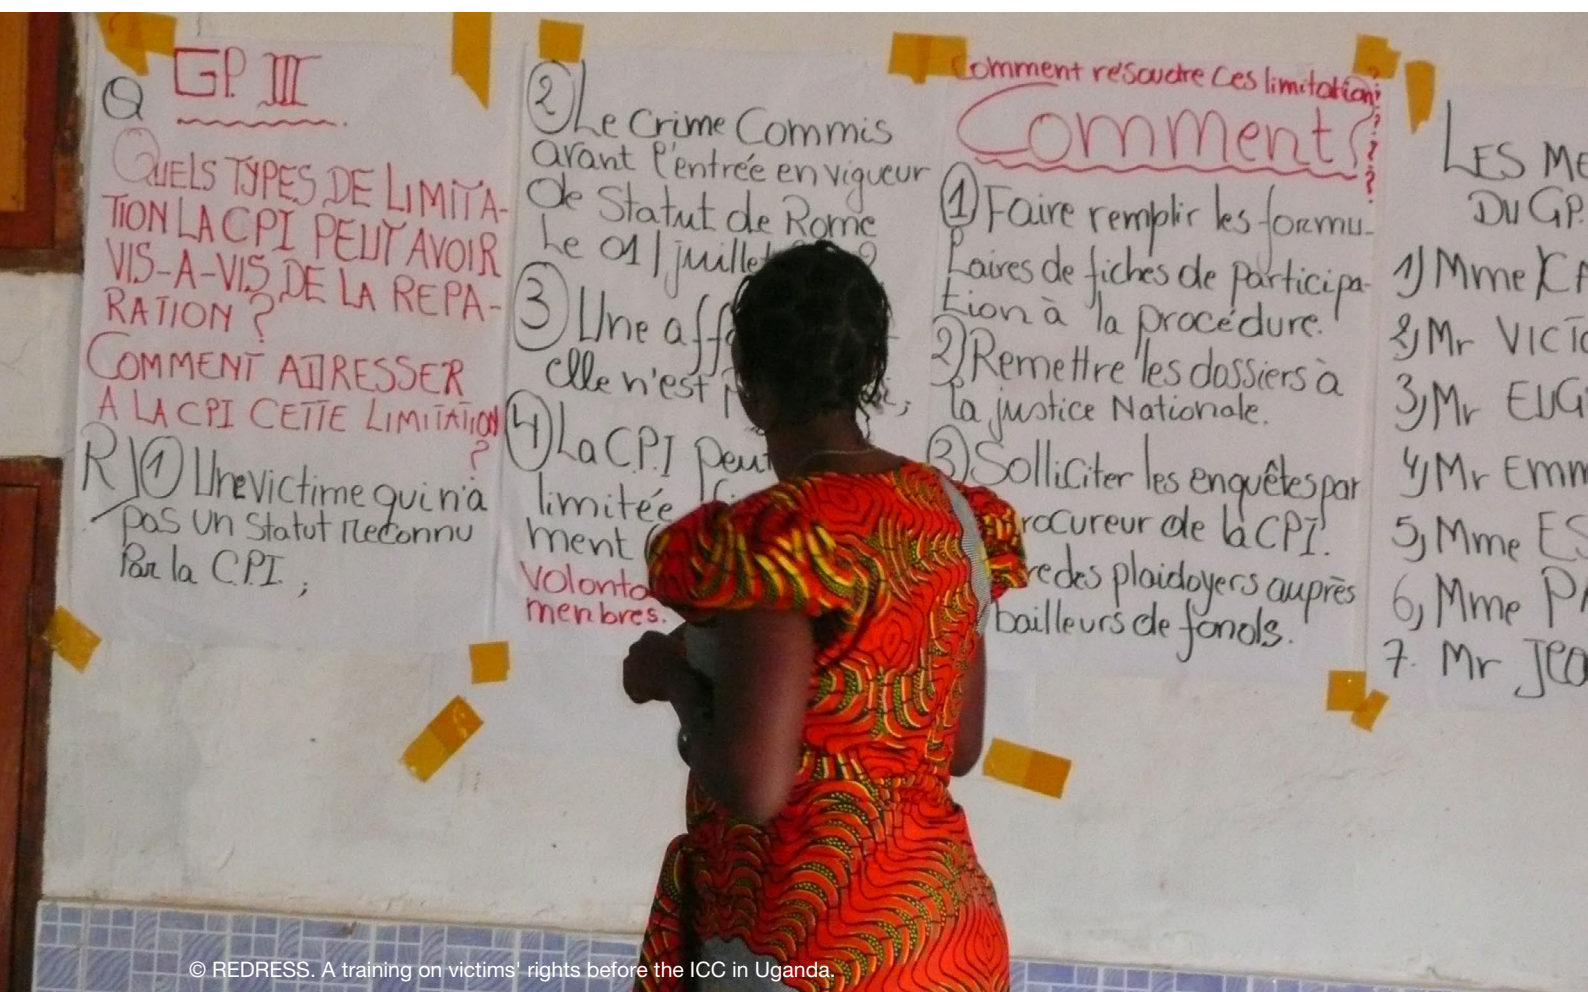 GP. III
Q
QUELS TYPES DE LIMITA-
TION LA CPI PEUT AVOIR
VIS-A-VIS DE LA REPA-
RATION ?
COMMENT ADRESSER
A LA CPI CETTE LIMITATION
?
R) ① Une victime qui n'a
pas un Statut reconnu
Par la C.P.I. ;
② Le Crime Commis
avant l'entrée en vigueur
de Statut de Rome
Le 01/juillet
③ Une aff
elle n'est
④ La C.P.I peut
limitée
ment
Volonta
menbres.
Comment résoudre Ces limitation?
Comment ????
① Faire remplir les formu-
Laires de fiches de participa-
tion à la procédure.
2) Remettre les dossiers à
la justice Nationale.
③ Solliciter les enquêtes par
rocureur de la CPI.
re des plaidoyers auprès
bailleurs de fonds.
LES ME
DU GP.
1) Mme KA
2) Mr VICTO
3) Mr EUG
4) Mr Emm
5) Mme ES
6) Mme PA
7. Mr Jea
© REDRESS. A training on victims' rights before the ICC in Uganda.